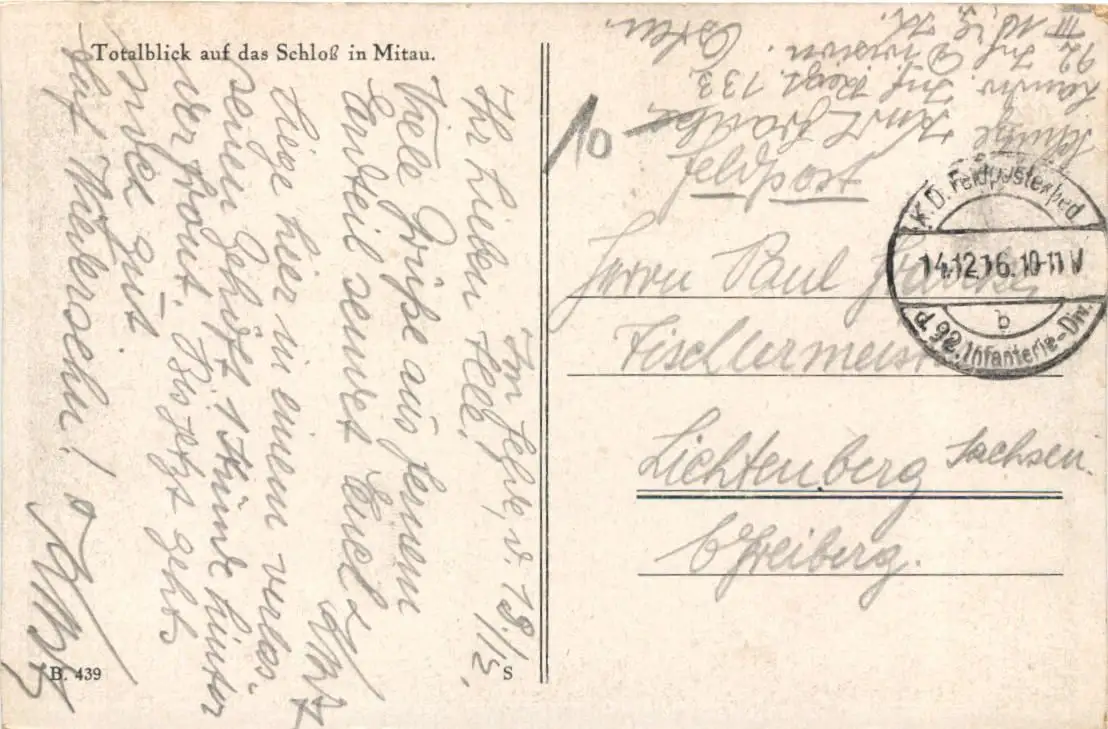 Totalblick auf das Schloß in Mitau.
Im Felde, d. 13./12.
Ihr Lieben Alle!
Viele Grüße aus fernem
Erdteil sendet Euch
Kurt
Liege hier in einem verlas-
senen Gehöft 1 Stunde hinter
der Front. Bis jetzt gehts
mir gut
Auf Wiedersehn!
Kurt
B. 439
S
10
Kurt
Inf. Regt. 133
92 Inf. Division.
Osten.
Feldpost
K.D. Feldpostexped.
14.12.16.10-11 V
b
d. 92. Infanterie-Div.
Herrn Paul
Tischlermeister
Lichtenberg Sachsen.
b/Freiberg.